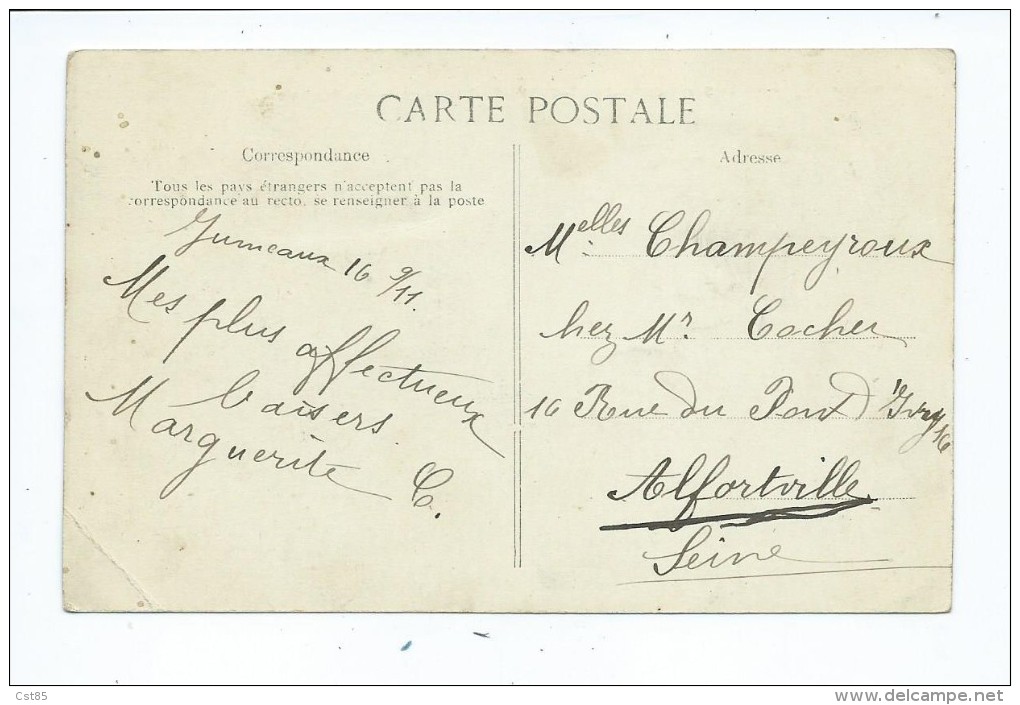 CARTE POSTALE
Correspondance
Tous les pays étrangers n'acceptent pas la
correspondance au recto, se renseigner à la poste
Jumeaux 16 9/11.
Mes plus affectueux
baisers
Marguerite C.
Adresse
Melles Champeyroux
chez Mr Cocher
16 Rue du Pont d'Ivry 16
Alfortville
Seine
Cst85
www.delcampe.net